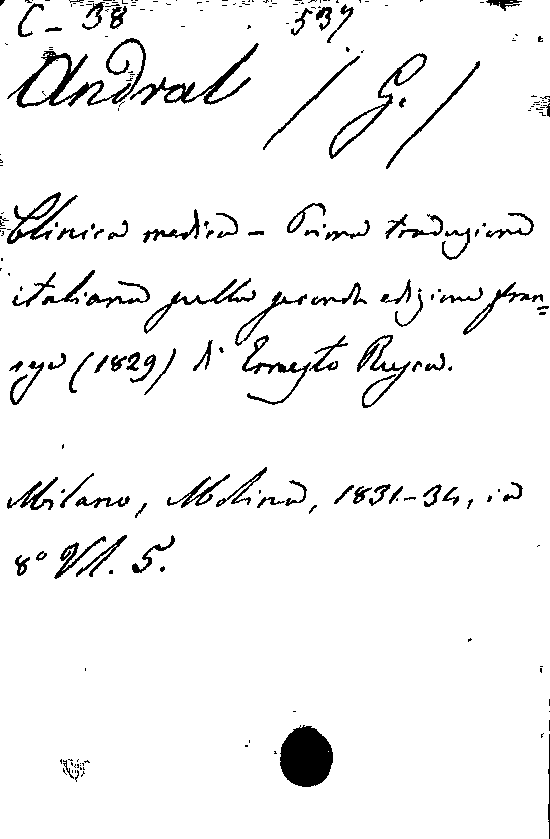 C - 38 537
Andral / G. /
Clinica medica - Prima traduzione
italiana sulla seconda edizione fran=
sese (1829) di Ernesto Rusca.
Milano, Molina, 1831-34, in
8° Vol. 5.